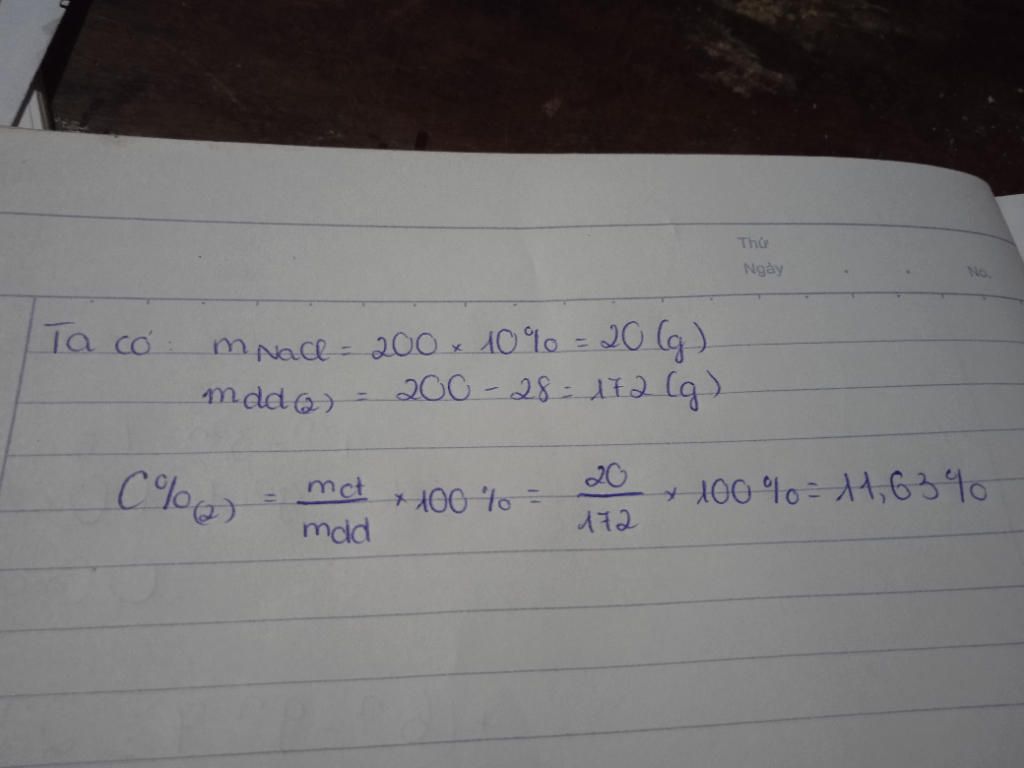 Thứ
Ngày . . No.
Ta có: mNaCl = 200 × 10% = 20 (g)
mdd(2) = 200 - 28 = 172 (g)
C%(2) = mct/mdd × 100% = 20/172 × 100% = 11,63%